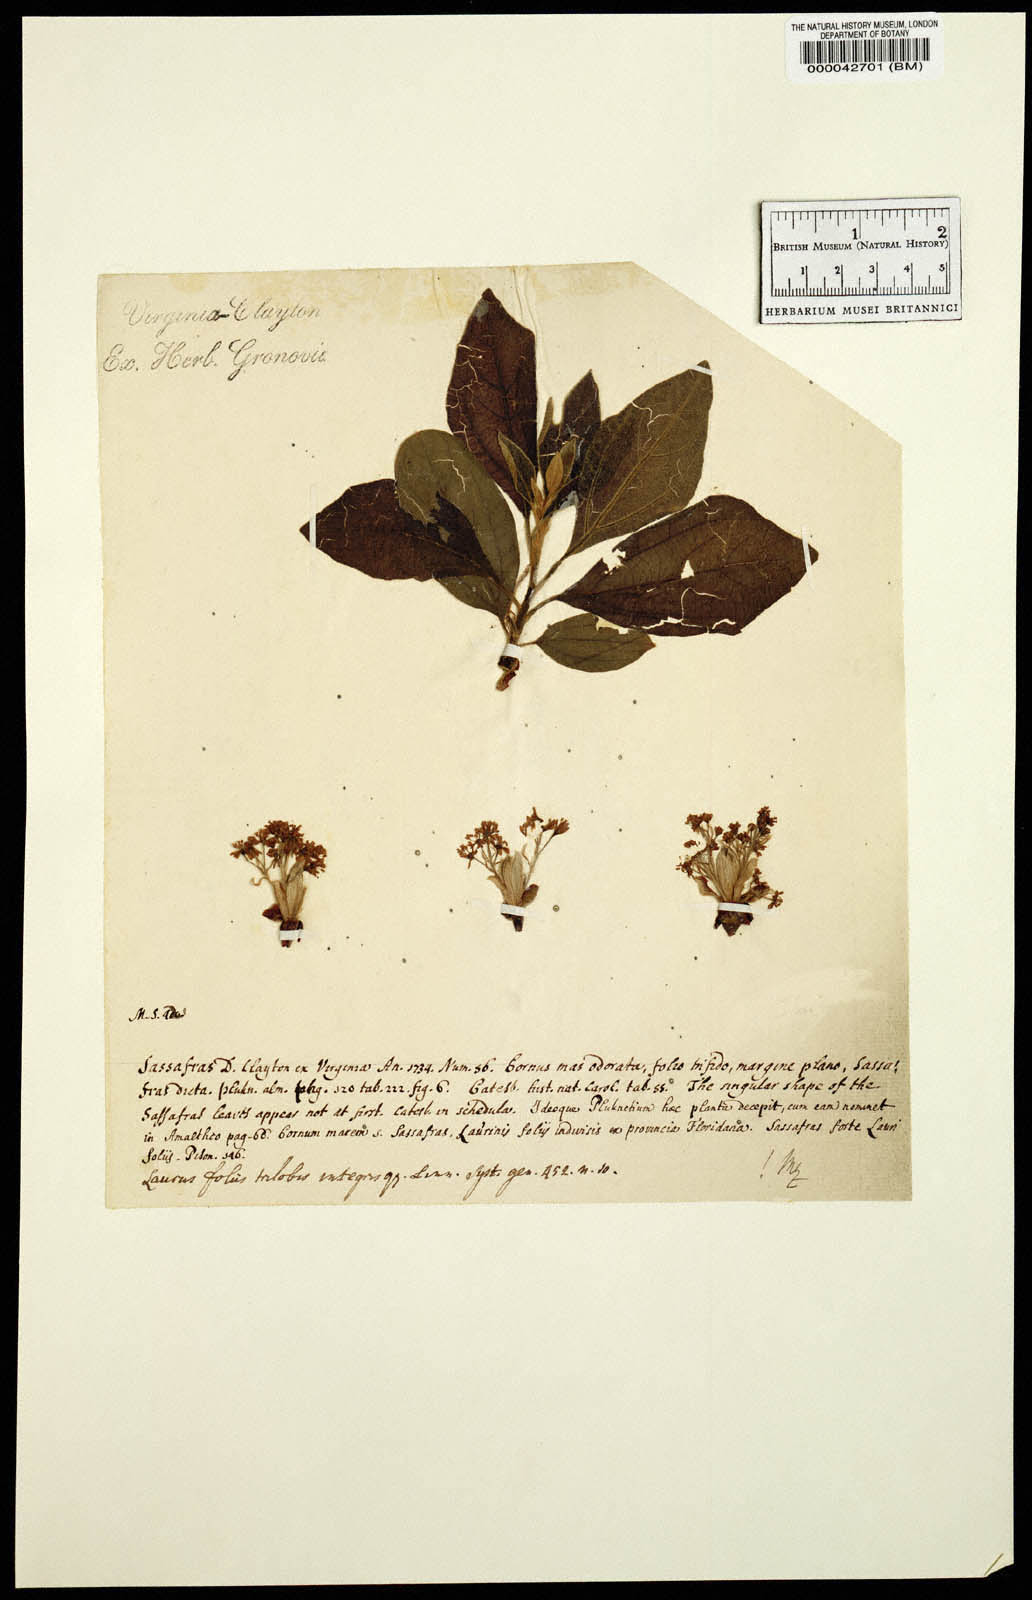 THE NATURAL HISTORY MUSEUM, LONDON
DEPARTMENT OF BOTANY
000042701 (BM)
1 2
BRITISH MUSEUM (NATURAL HISTORY)
1 2 3 4 5
HERBARIUM MUSEI BRITANNICI
Virginia Clayton
Ex. Herb. Gronovic
M. S.
Sassafras D. Clayton ex Virginia An. 1734. Num. 56. Cornus mas odorata, folio trifido, margine plano, Sassa:
fras dicta. plukn. alm. 120 tab. 222. fig. 6. Catesb. hist. nat. Carol. tab. 55. The singular shape of the
Sassafras leaves appear not at first. Catesb. in schedula. Ideoque Pluknetium hæc planta decepit, cum eam nominet
in Amaltheo pag. 60. Cornum marem s. Sassafras, Laurinis foliis indivisis ex provincia Floridana. Sassafras forte Lauri
foliis. Peton. 346.
Laurus foliis trilobis integrisqz. Linn. Syst. gen. 452. n. 10.